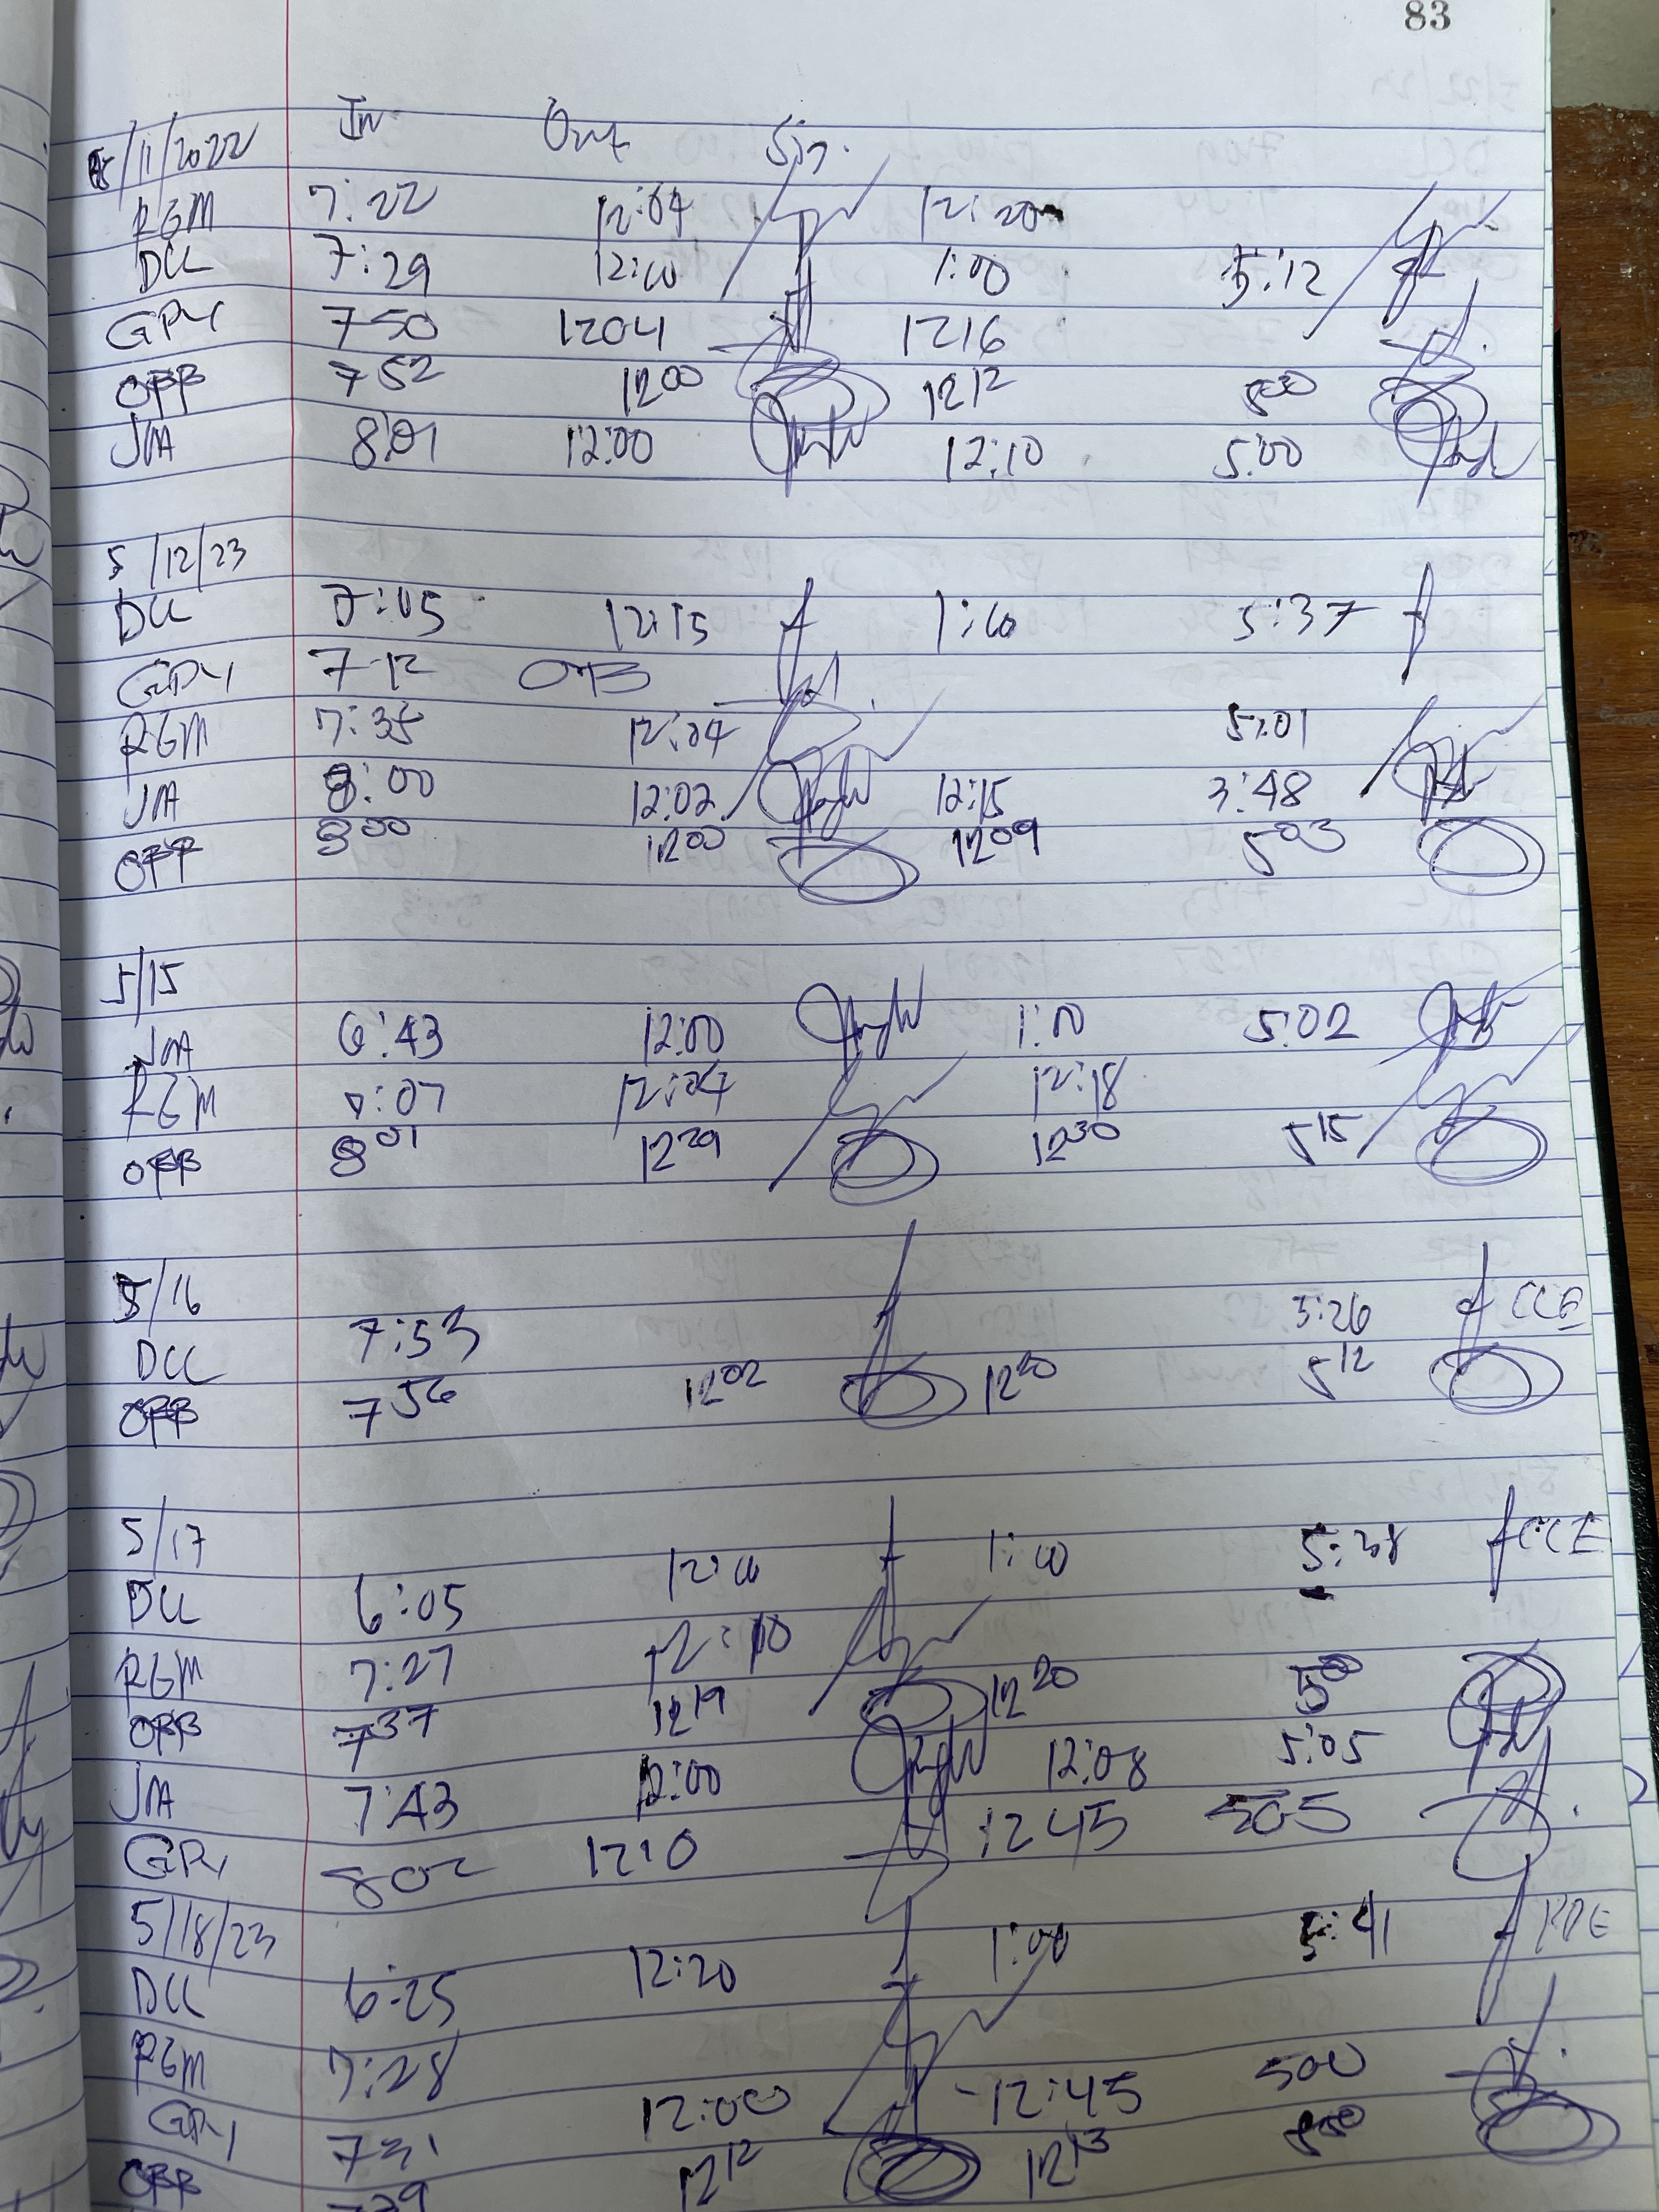 83
In Out Sig.
5/11/2022
RGM 7:22 12:04 12:20
DCL 7:29 12:10 1:00 5:12
GPY 750 1204 1216
OFB 752 1200 1212 500
JMA 8:01 12:00 12:10 5:00
5/12/23
DCL 7:05 12:15 1:00 5:37
GPY 7-12 OTB
RGM 7:35 12:04 5:01
JMA 8:00 12:02 12:15 3:48
OFF 800 1200 1209 503
5/15
JMA 6:43 12:00 1:00 5:02
RGM 7:07 12:04 12:18
OFB 801 1229 1230 515
5/16
DCL 7:53 5:26 CCE
OFB 756 1202 1220 512
5/17
DCL 6:05 12:00 1:00 5:38 CCE
RGM 7:27 12:10
OFB 737 1219 1220 500
JMA 7:43 12:00 12:08 5:05
GPY 802 1210 1245 505
5/18/23
DCL 6:25 12:20 1:00 5:41
RGM 7:28
GPY 731 12:00 12:45 500
OFB 739 1212 1213